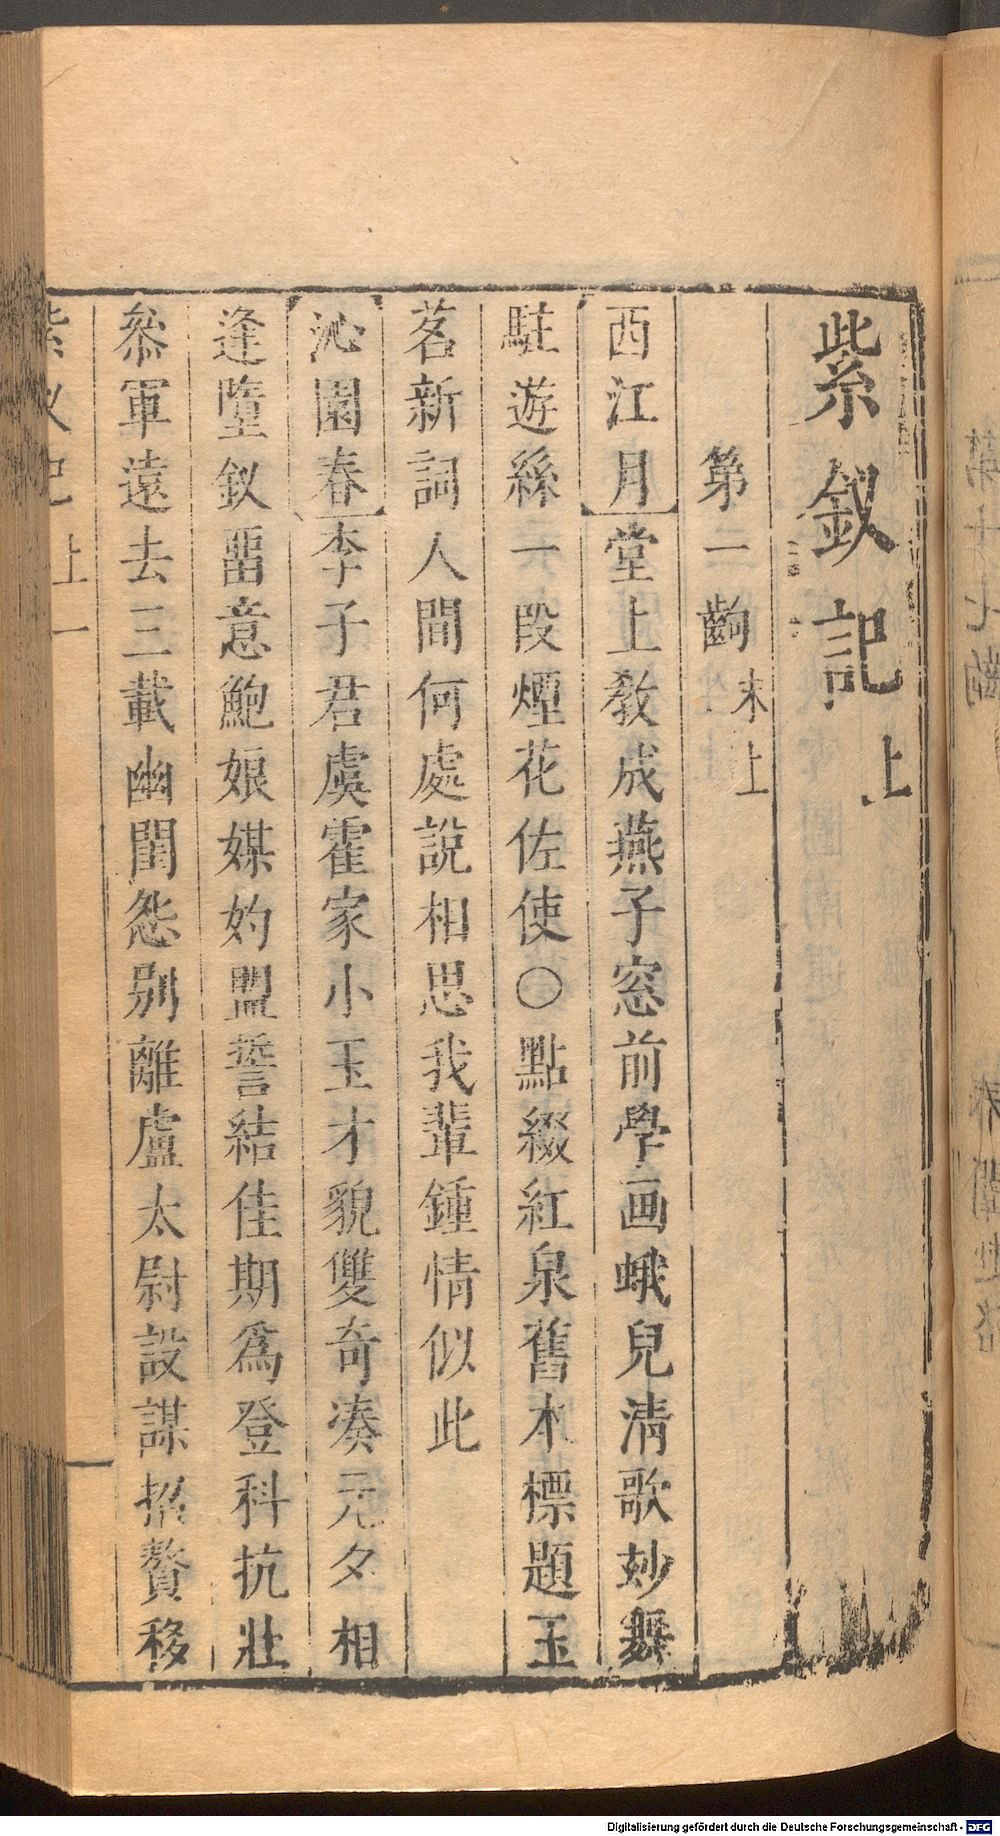 紫釵記 上
第一齣 末上
西江月 堂上敎成燕子窓前學画蛾兒清歌妙舞
駐遊絲一段煙花佐使○點綴紅泉舊本標題玉
茗新詞人間何處說相思我輩鍾情似此
沁園春 李子君虞霍家小玉才貌雙奇凑元夕相
逢墮釵畱意鮑娘媒妁盟誓結佳期爲登科抗壯
叅軍遠去三載幽閨怨别離盧太尉設謀招贅移
紫釵記 上 一
Digitalisierung gefördert durch die Deutsche Forschungsgemeinschaft - DFG